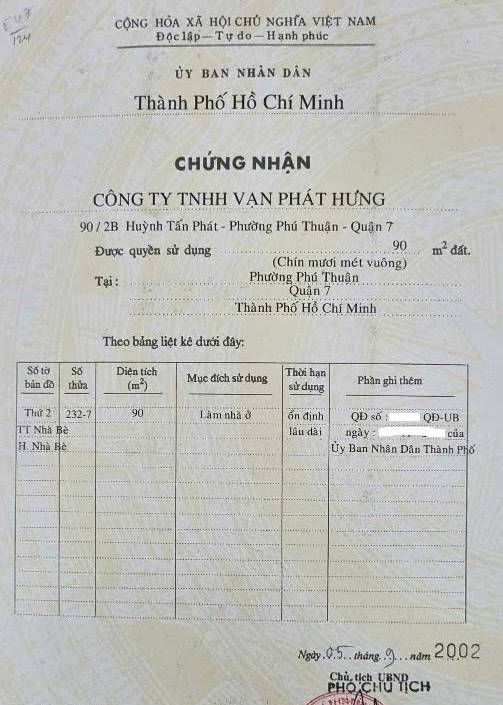 EU3
124
CỘNG HÒA XÃ HỘI CHỦ NGHĨA VIỆT NAM
Độc lập — Tự do — Hạnh phúc
ỦY BAN NHÂN DÂN
Thành Phố Hồ Chí Minh
CHỨNG NHẬN
CÔNG TY TNHH VẠN PHÁT HƯNG
90 / 2B Huỳnh Tấn Phát - Phường Phú Thuận - Quận 7
Được quyền sử dụng 90 m² đất.
(Chín mươi mét vuông)
Tại : Phường Phú Thuận
Quận 7
Thành Phố Hồ Chí Minh
Theo bảng liệt kê dưới đây:
Số tờ bản đồ Số thửa Diện tích (m²) Mục đích sử dụng Thời hạn sử dụng Phần ghi thêm
Thứ 2 232-7 90 Làm nhà ở ổn định QĐ số : QĐ-UB
TT Nhà Bè lâu dài ngày : của
H. Nhà Bè Ủy Ban Nhân Dân Thành Phố
Ngày 05 tháng 9 năm 2002
Chủ tịch UBND
PHÓ CHỦ TỊCH